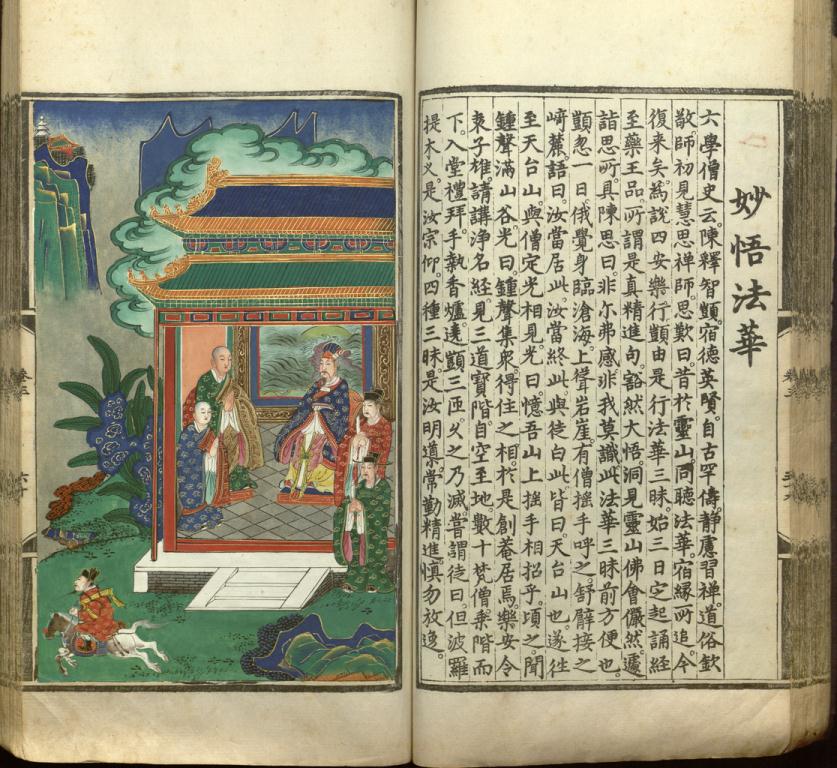 妙悟法華
六學僧史云。陳釋智顗。宿德英賢。自古罕儔。靜慮習禪。道俗欽
敬。師初見慧思禪師。思歎曰。昔於靈山同聽法華。宿緣所追。今
復來矣。為說四安樂行。顗由是行法華三昧。始三日定起誦經
至藥王品。所謂是真精進句。豁然大悟。洞見靈山佛會儼然。遽
詣思所具陳。思曰。非尔弗感。非我莫識。此法華三昧前方便也。
顗忽一日。俄覺身臨滄海。上聳岩崖。有僧搖手呼之。舒臂接之
﨑麓。語曰。汝當居此。汝當終此。與徒白此。皆曰。天台山也。遂往
至天台山。與僧定光相見。光曰。憶吾山上搖手相招乎。頃之。聞
鍾聲滿山谷。光曰。鍾聲集衆。得住之相。於是創菴居焉。樂安令
袁子雄。請講淨名經。見三道寶階。自空至地。數十梵僧。乘階而
下。入堂禮拜。手執香爐。遶顗三匝。乆之乃滅。嘗謂徒曰。但波羅
提木义。是汝宗仰。四種三昧。是汝明導。常勤精進。慎勿放逸。